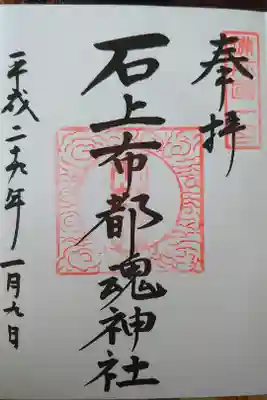 奉拝
石上布都魂神社
平成二十九年一月九日